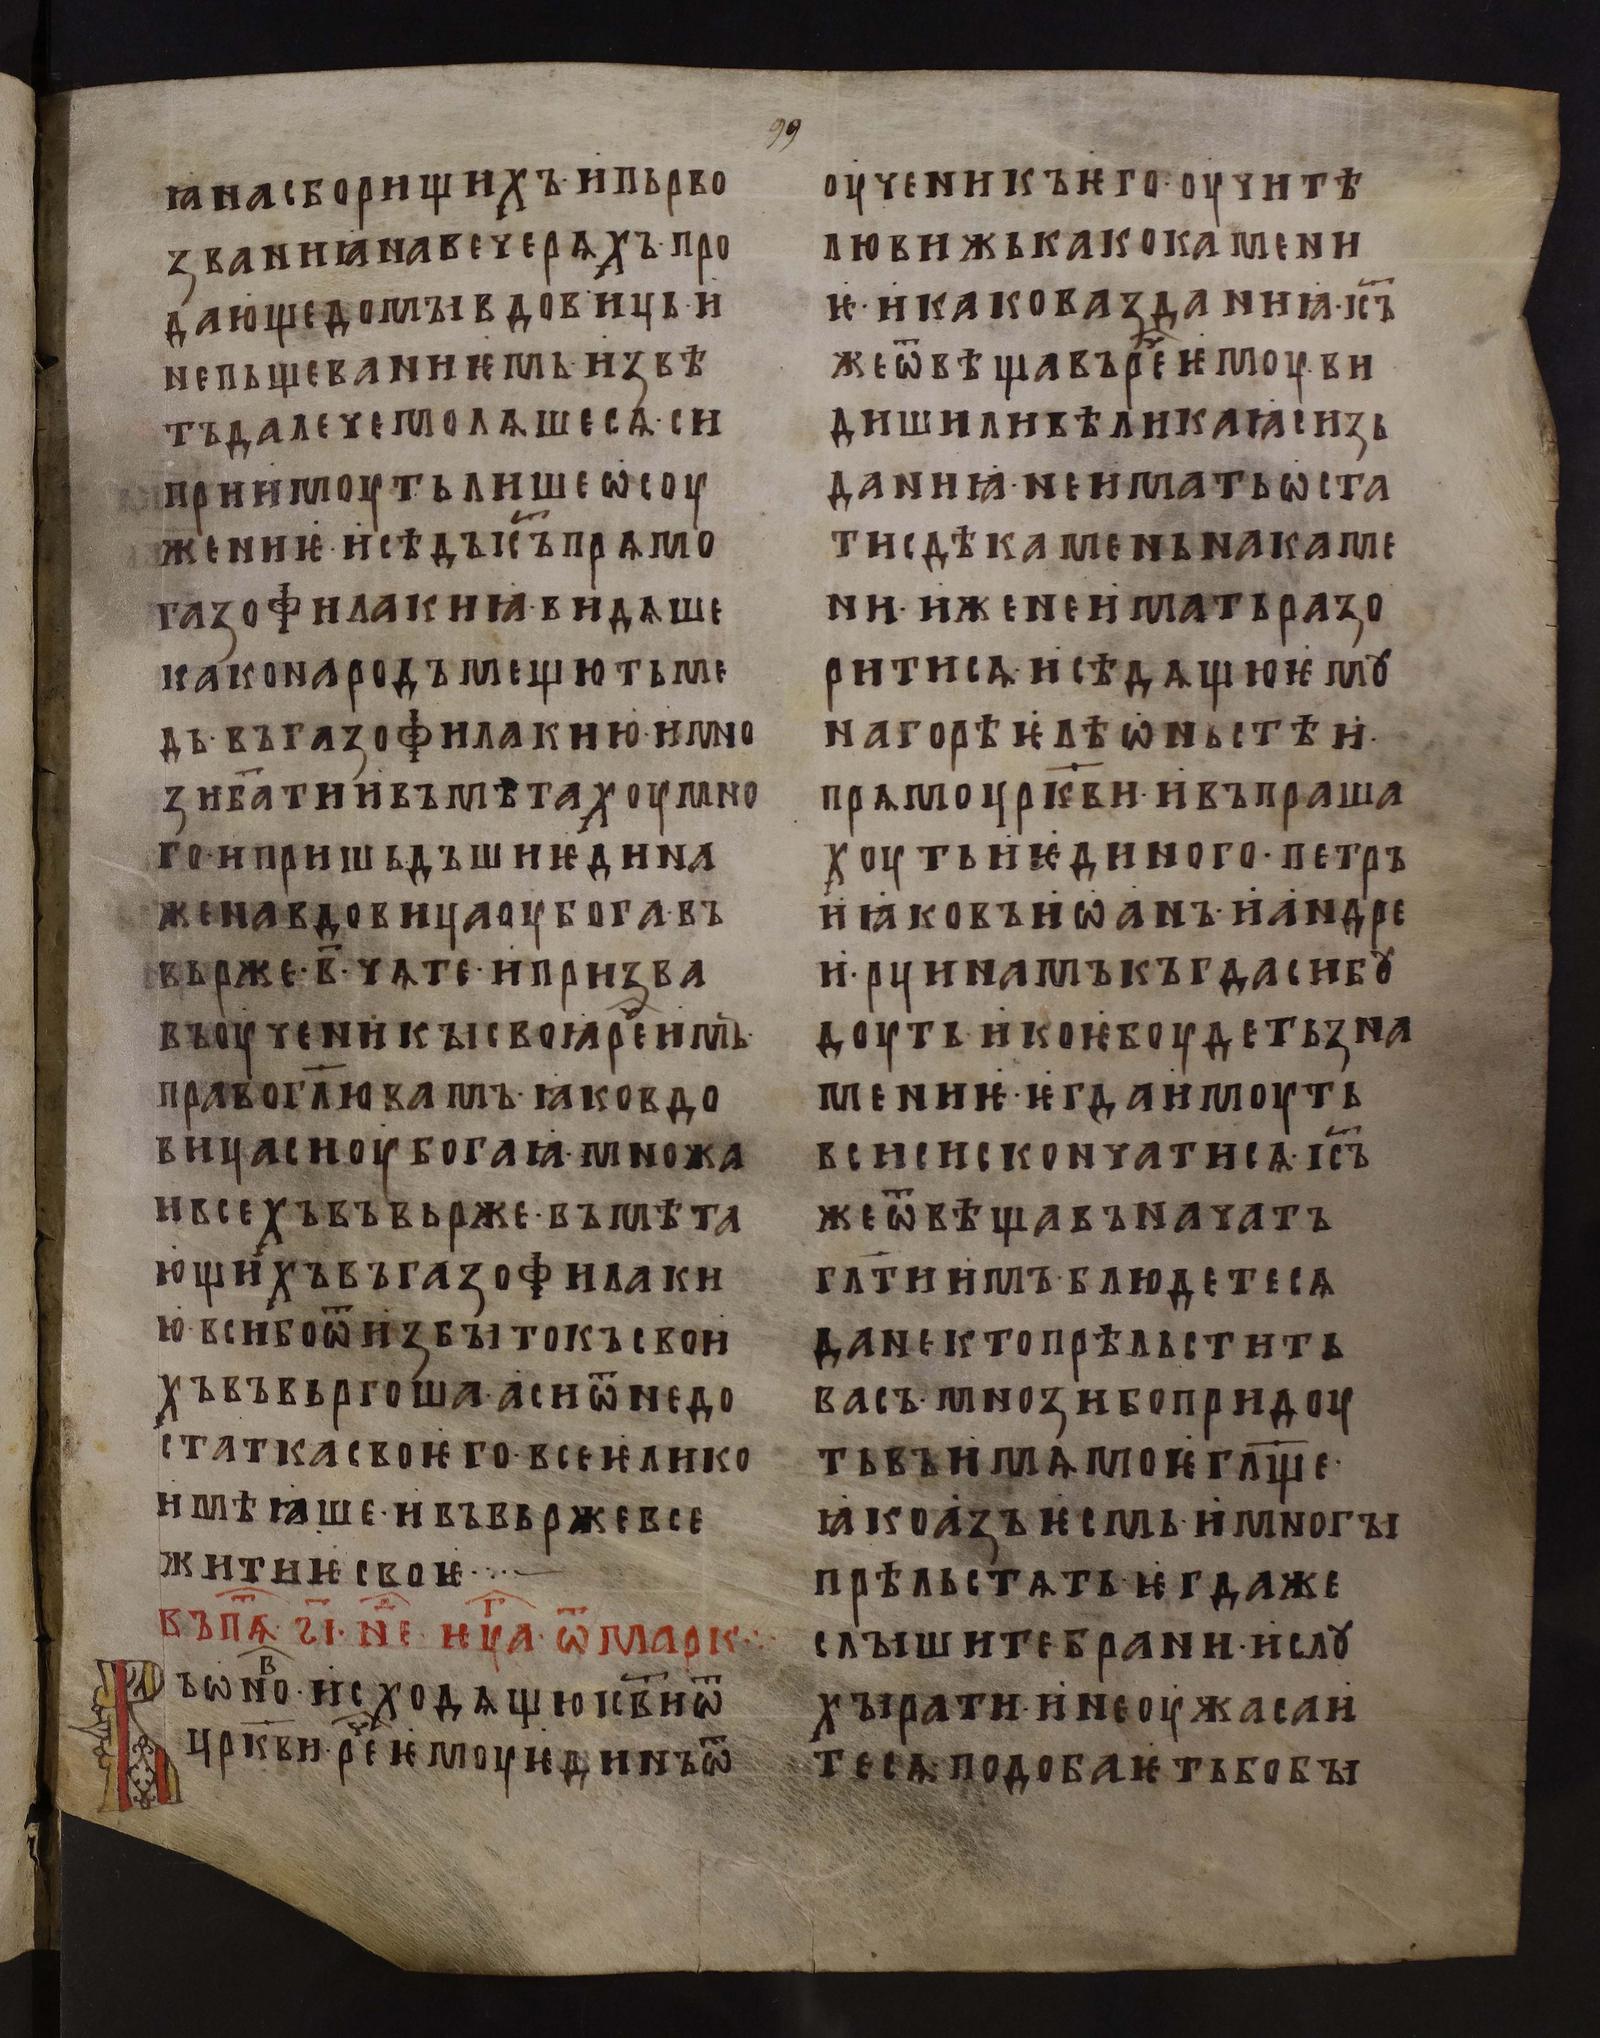 99
ꙗнасборищихъ·и҆пьрво
званиꙗнавечерѧхъ·про
даюшедомꙑвдов҆ицѣ·и҆
непьщеваниѥмь·и҆звѣ
тъдалечемолѧшесѧ·си
прии҆моуть лишеѡсоу
жениѥ·и҆сѣдъі҆с҃ъпрѧмо
газофилакиꙗ·видѧше
каконародъмещютьме
дь·въгазофилакию·и҆мно
зиб҃атии҆въмѣтахоумно
го·и҆пришьдъшиѥдина
женавдовицаоубога·въ
вьрже·в҃·чѧте·и҆призва
въоученикꙑсвоꙗреⷱи҆мъ·
правогл҃ювамъ·ꙗковдо
вицасиоубогаꙗ·множа
ивсехъвъвьрже·въмѣта
ющихъвъгазофилаки
ю·всибоѿи҆збꙑтокъсвои
хъвъвьргоша·асиѿнедо
статкасвоѥго·всеѥлико
имѣꙗше·и҆въвьржевсе
житиѥсвоѥ·:·—
въпѧⷮ·г҃і·неⷣ·ѥцⷢа·ѿмарк·:·
Въѡноⷡ·и҆сходѧщюі҆с҃виѿ
цр҃кви·реⷱѥмоуѥдинъѿ
оученикъѥго·оучитѣ
лювижькакокамени
ѥ·и҆каковазданиꙗ·і҆с҃ъ
жеѿвѣщавъреⷱѥмоу·ви
дишиливѣликаꙗсизь
даниꙗ·неи҆матьѡста
тисдѣкаменьнакаме
ни·и҆женеи҆матьразо
ритисѧ·и҆сѣдѧщюѥмꙋ
нагорѣѥлѣѡньстѣи҆·
прѧмоцр҃кви·и҆въпраша
хоутьиѥдиного·петръ
и҆ꙗковъи҆ѡанъ·и҆андре
и·рцинамъкъгдасибꙋ
доуть·и҆коѥбоудетьзна
мениѥ·ѥгдаи҆моуть
всисисконча тисѧ·і҆с҃ъ
жеѿвѣщавъначатъ
гл҃тии҆мъ·блюдетесѧ
данектопрѣльстить
васъ·мнозибопридоу
тьвъи҆мѧмоѥгл҃ще·
ꙗкоазъѥсмь·и҆многꙑ
прѣльстѧть·ѥгдаже
слꙑшитебрани·и҆слꙋ
хꙑрати·и҆неоужасаи҆
тесѧ·подобаѥтьбобꙑ